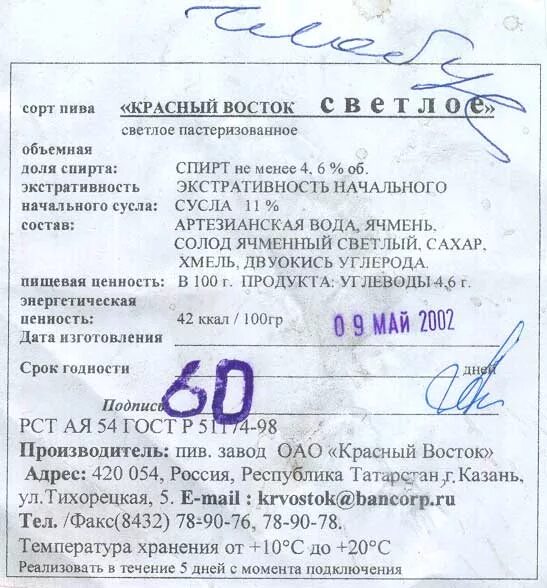 сорт пива «КРАСНЫЙ ВОСТОК СВЕТЛОЕ»
светлое пастеризованное
объемная
доля спирта: СПИРТ не менее 4, 6 % об.
экстративность ЭКСТРАТИВНОСТЬ НАЧАЛЬНОГО
начального сусла: СУСЛА 11 %
состав: АРТЕЗИАНСКАЯ ВОДА, ЯЧМЕНЬ,
СОЛОД ЯЧМЕННЫЙ СВЕТЛЫЙ, САХАР,
ХМЕЛЬ, ДВУОКИСЬ УГЛЕРОДА.
пищевая ценность: В 100 г. ПРОДУКТА: УГЛЕВОДЫ 4,6 г.
энергетическая
ценность: 42 ккал / 100гр
09 МАЙ 2002
Дата изготовления
Срок годности 60 дней
Подпись
РСТ АЯ 54 ГОСТ Р 51174-98
Производитель: пив. завод ОАО «Красный Восток»
Адрес: 420 054, Россия, Республика Татарстан, г. Казань,
ул.Тихорецкая, 5. E-mail : krvostok@bancorp.ru
Тел. /Факс(8432) 78-90-76, 78-90-78.
Температура хранения от +10°С до +20°С
Реализовать в течение 5 дней с момента подключения